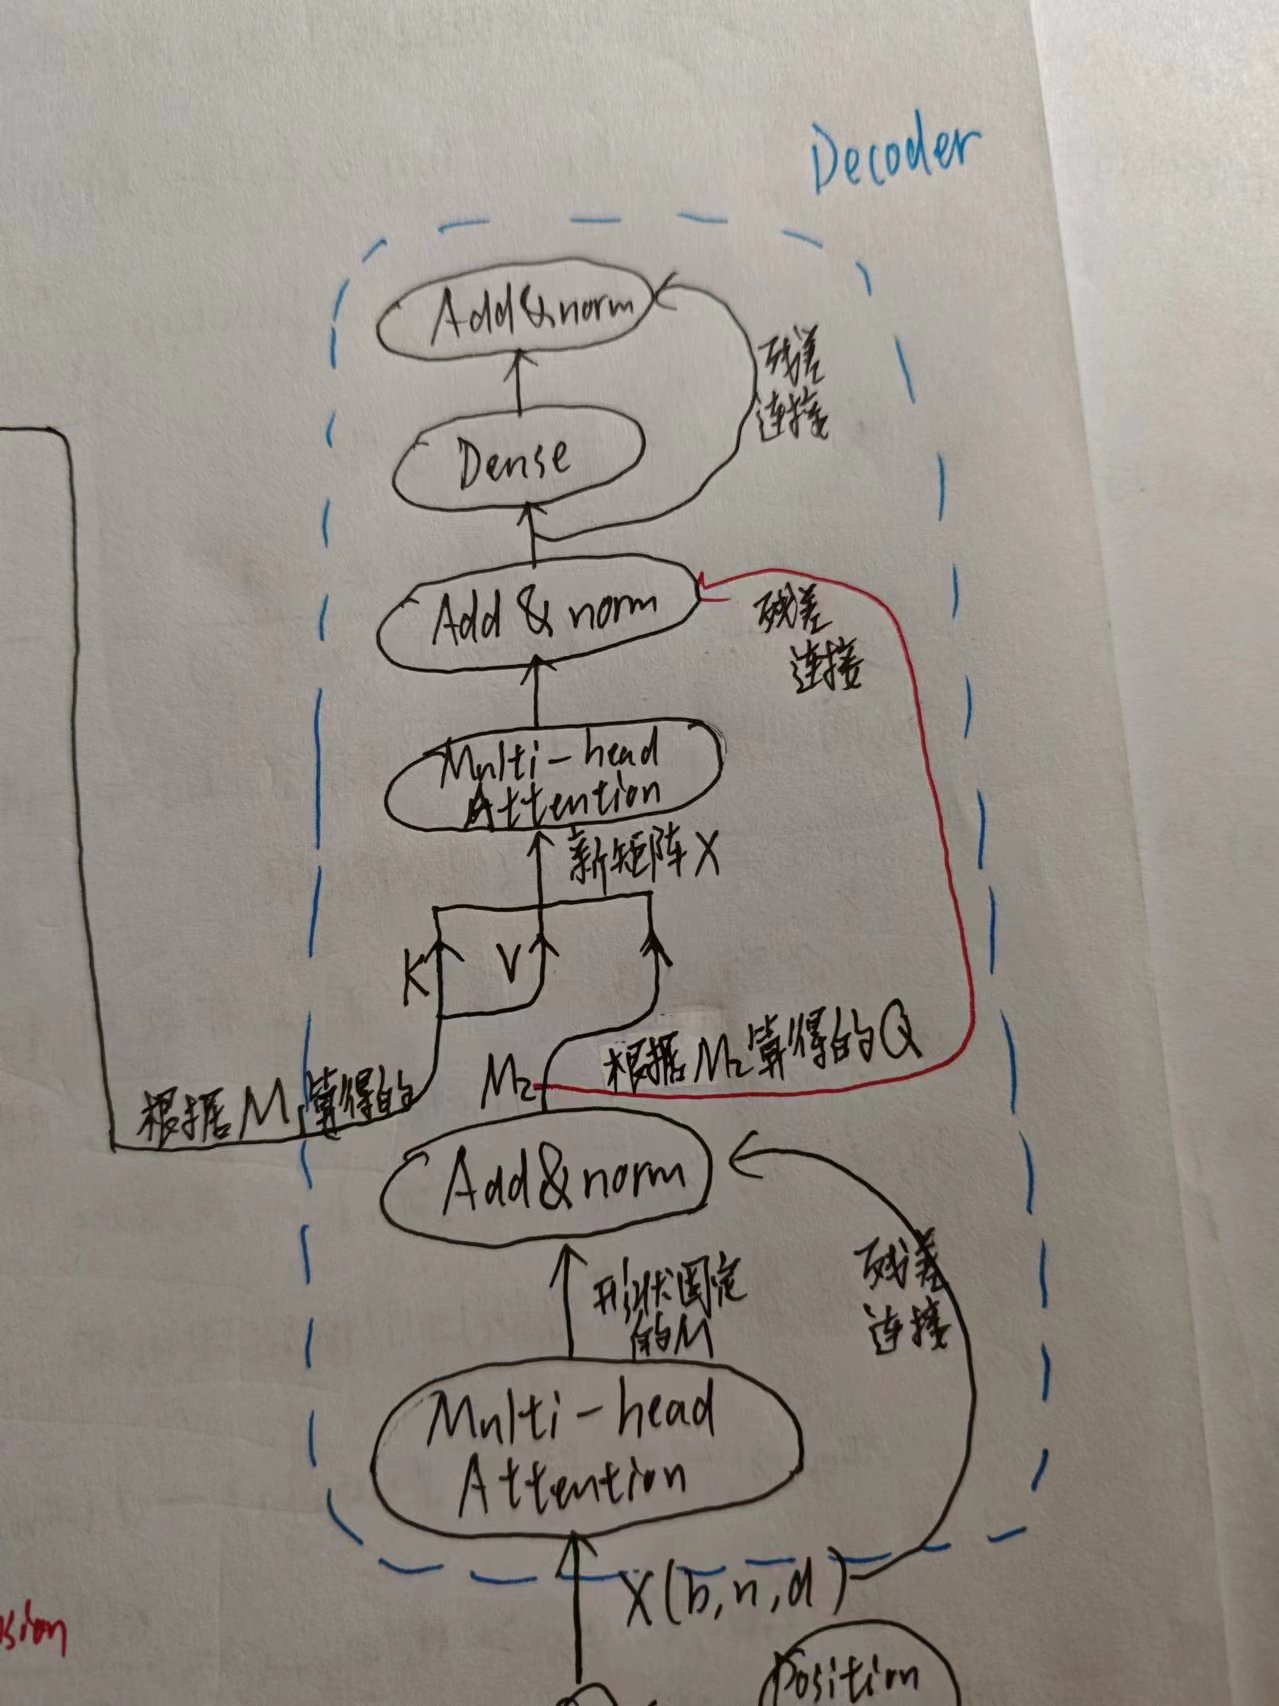 Decoder
Add&norm
残差
连接
Dense
Add & norm
残差
连接
Multi-head
Attention
新矩阵X
K
V
M2
根据M2算得的Q
根据M1算得的
Add&norm
形状固定
的M
残差
连接
Multi-head
Attention
X(b,n,d)
Position